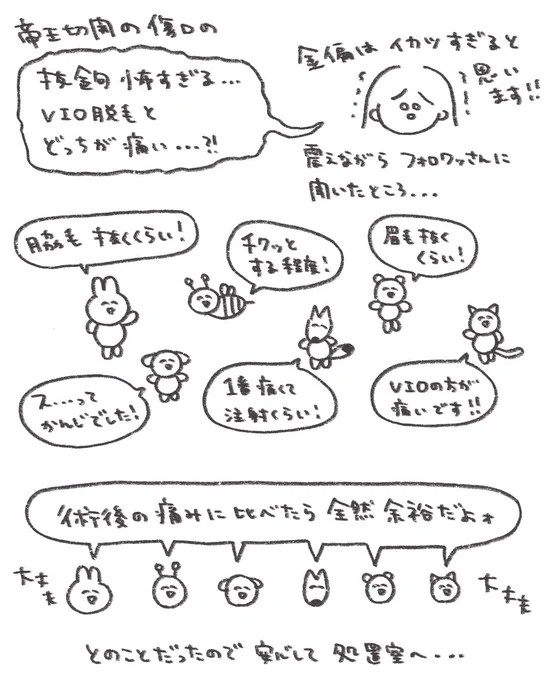 帝王切開の傷口の
抜鈎怖すぎる...
VIO脱毛と
どっちが痛い...?!
金偏は イカツすぎると
思い
ます!!
震えながら フォロワッさんに
聞いたところ...
脇毛 抜くくらい!
チクッと
する程度!
眉毛抜く
くらい!
ス...って
かんじでした!
1番痛くて
注射くらい!
VIOの方が
痛いです!!
術後の痛みに比べたら 全然 余裕だよォ
大丈夫
大丈夫
とのことだったので 安心して 処置室へ...